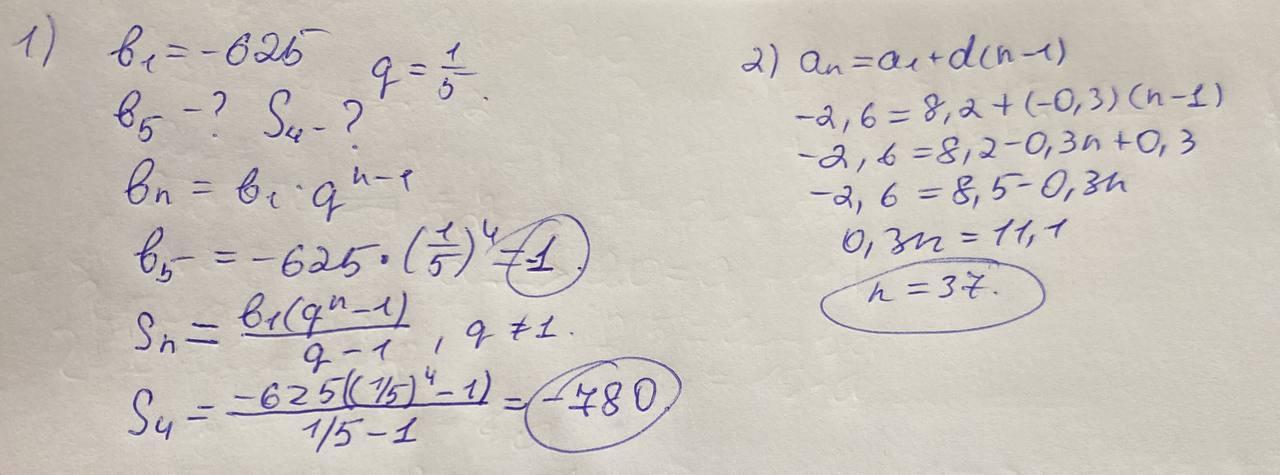 1) b₁ = -625 q = 1/5.
b₅ - ? S₄ - ?
bₙ = b₁ · qⁿ⁻¹
b₅ = -625 · (1/5)⁴ = -1
Sₙ = b₁(qⁿ - 1) / q - 1, q ≠ 1.
S₄ = -625((1/5)⁴ - 1) / 1/5 - 1 = -780
2) aₙ = a₁ + d(n-1)
-2,6 = 8,2 + (-0,3)(n-1)
-2,6 = 8,2 - 0,3n + 0,3
-2,6 = 8,5 - 0,3n
0,3n = 11,1
n = 37.